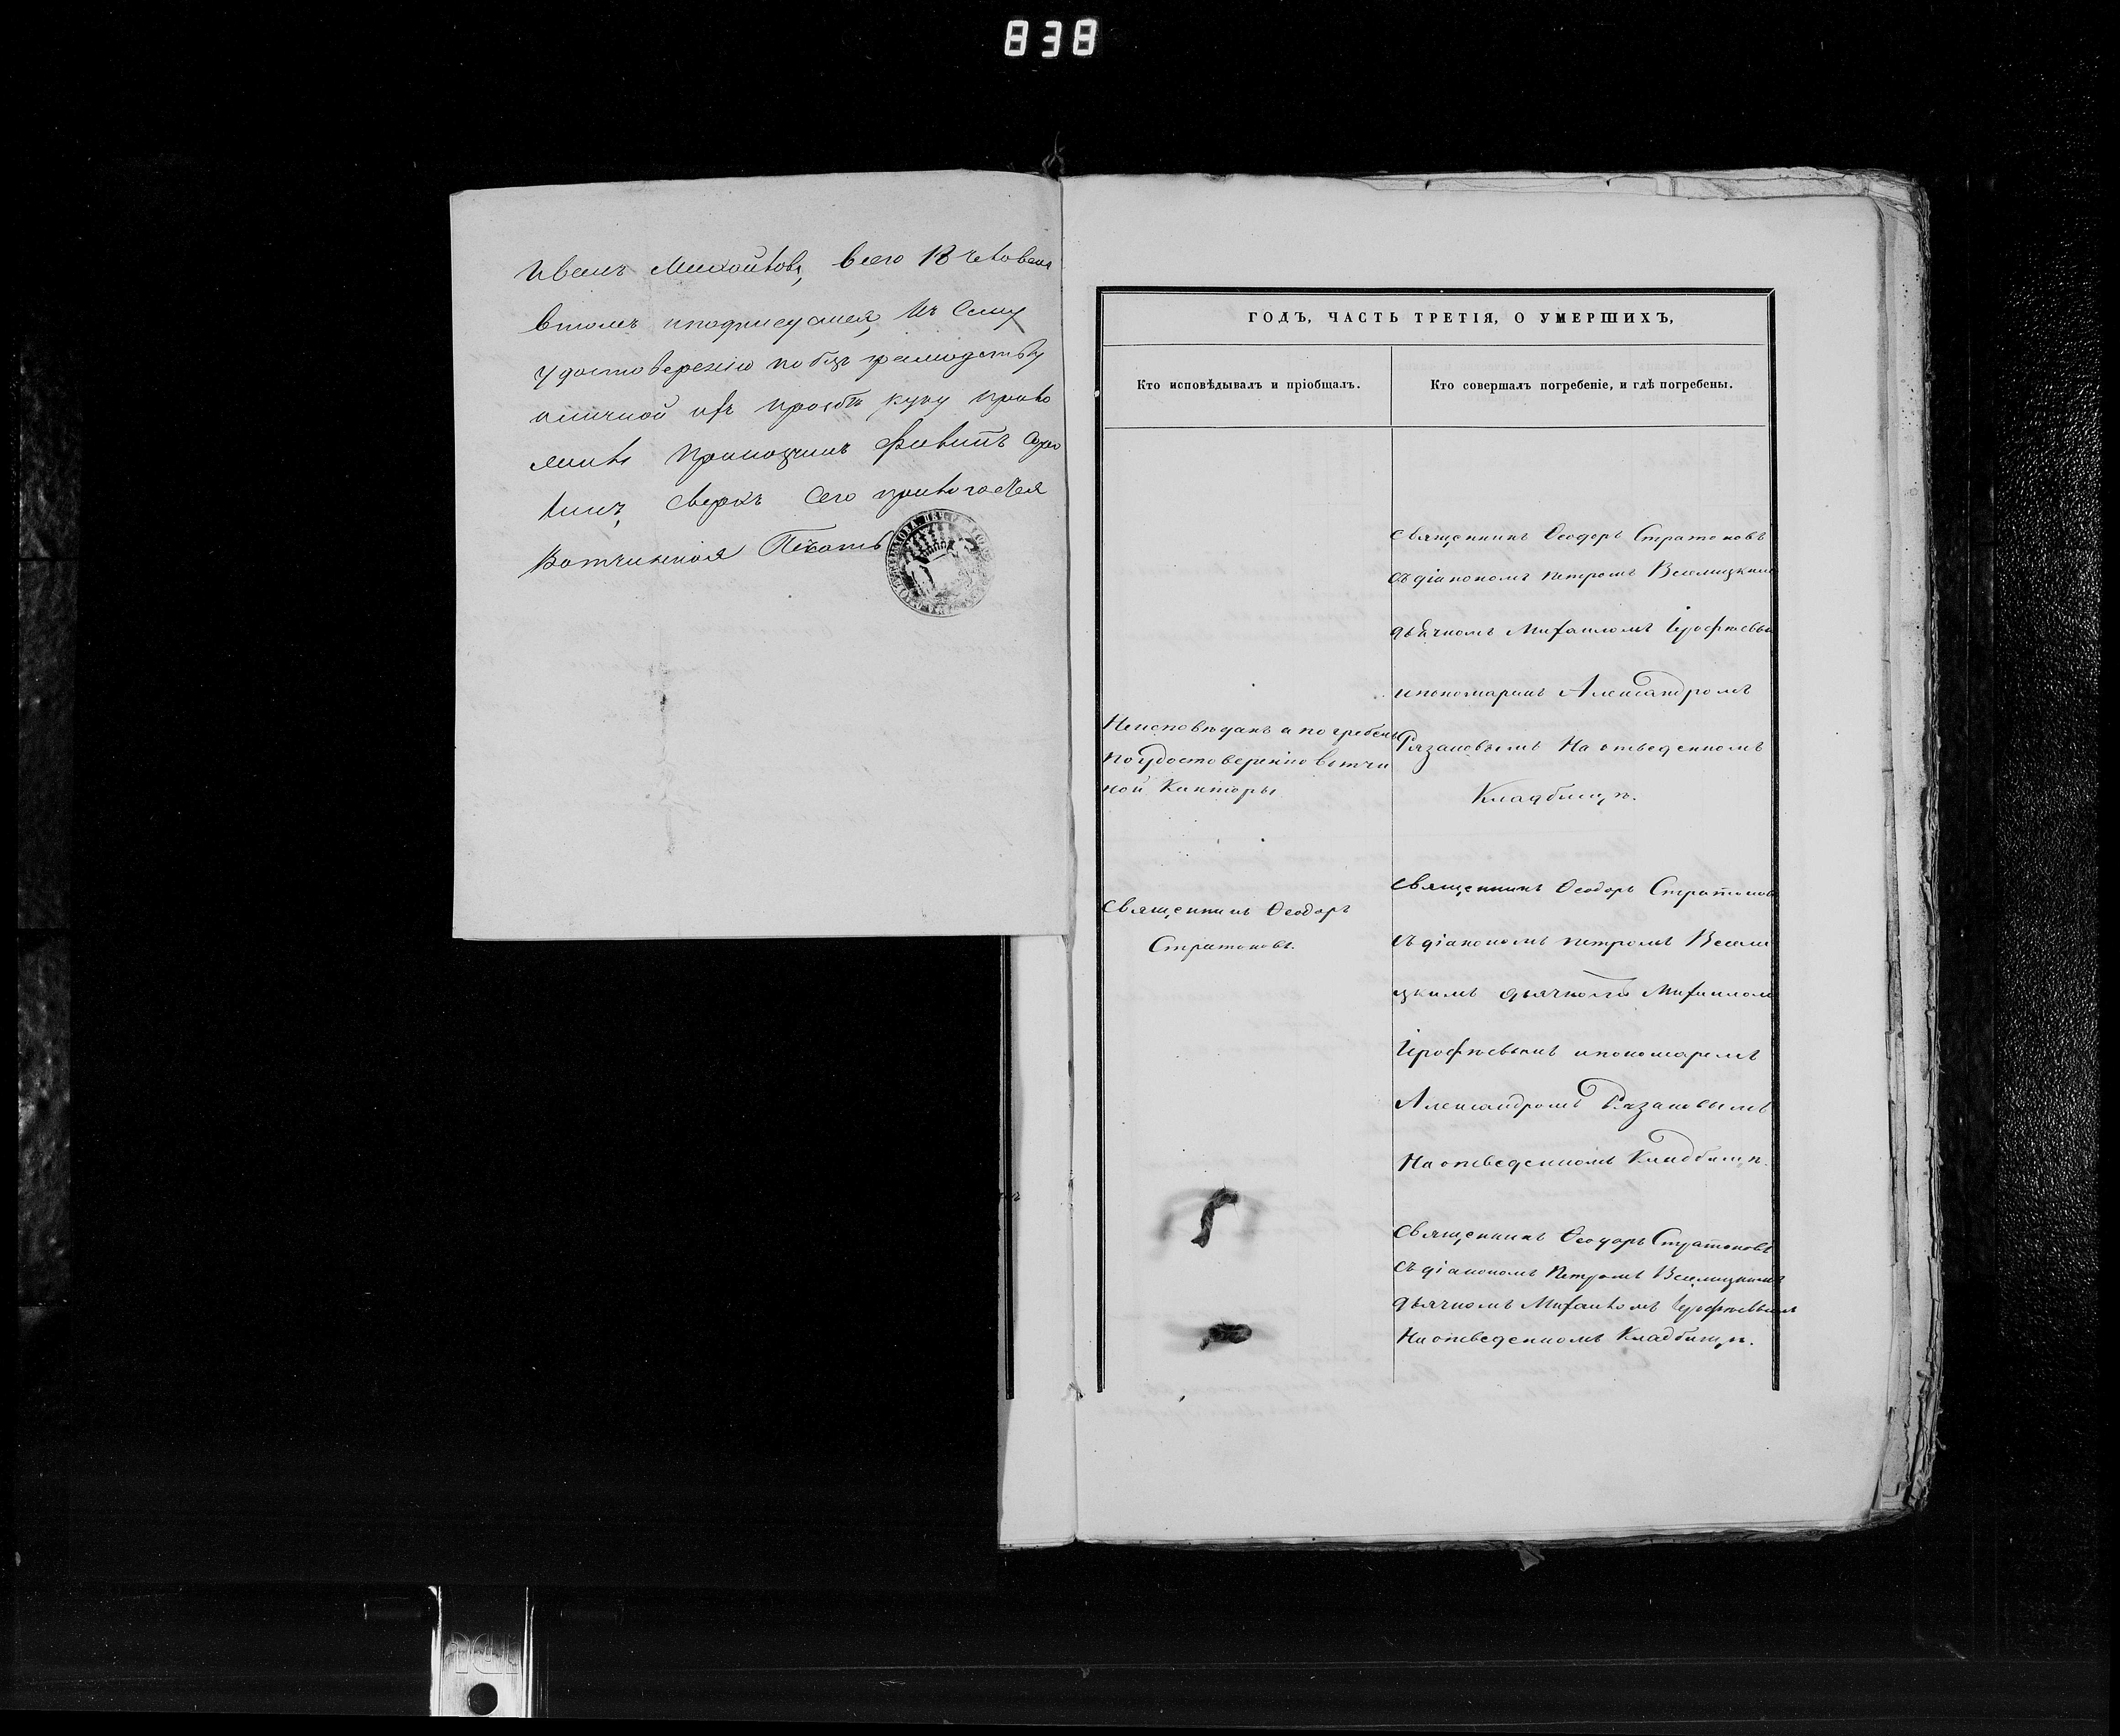 838
Иванъ Михайловъ, всего 18 человекъ
втомъ иподписуемся, Къ сему
удостоверению побезграмодству
оличной ихъ прозбе руку прило
жилъ
сверхъ сего прилогается
Вотчинная Печать
ГОДЪ, ЧАСТЬ ТРЕТІЯ, О УМЕРШИХЪ,
Кто исповѣдывалъ и пріобщалъ.
Кто совершалъ погребеніе, и гдѣ погребены.
Неисповѣданъ а погребенъ
поудостоверенію вотчи
ной Канторы
Священникъ Ѳеодоръ
Стратоновъ.
Священникъ Ѳеодоръ Стратоновъ
съ діакономъ Петромъ
дьячкомъ Михаиломъ Іерофѣевымъ
ипономаремъ Александромъ
Рязановымъ На отведенномъ
Кладбищѣ.
Священникъ Ѳеодоръ Стратоновъ
съ діакономъ Петромъ
цкимъ дьячкомъ Михаиломъ
Іерофѣевымъ ипономаремъ
Александромъ Рязановымъ
На отведенномъ Кладбищѣ.
Священникъ Ѳеодоръ Стратоновъ
съ діакономъ Петромъ
дьячкомъ Михаиломъ Іерофѣевымъ
На отведенномъ Кладбищѣ.